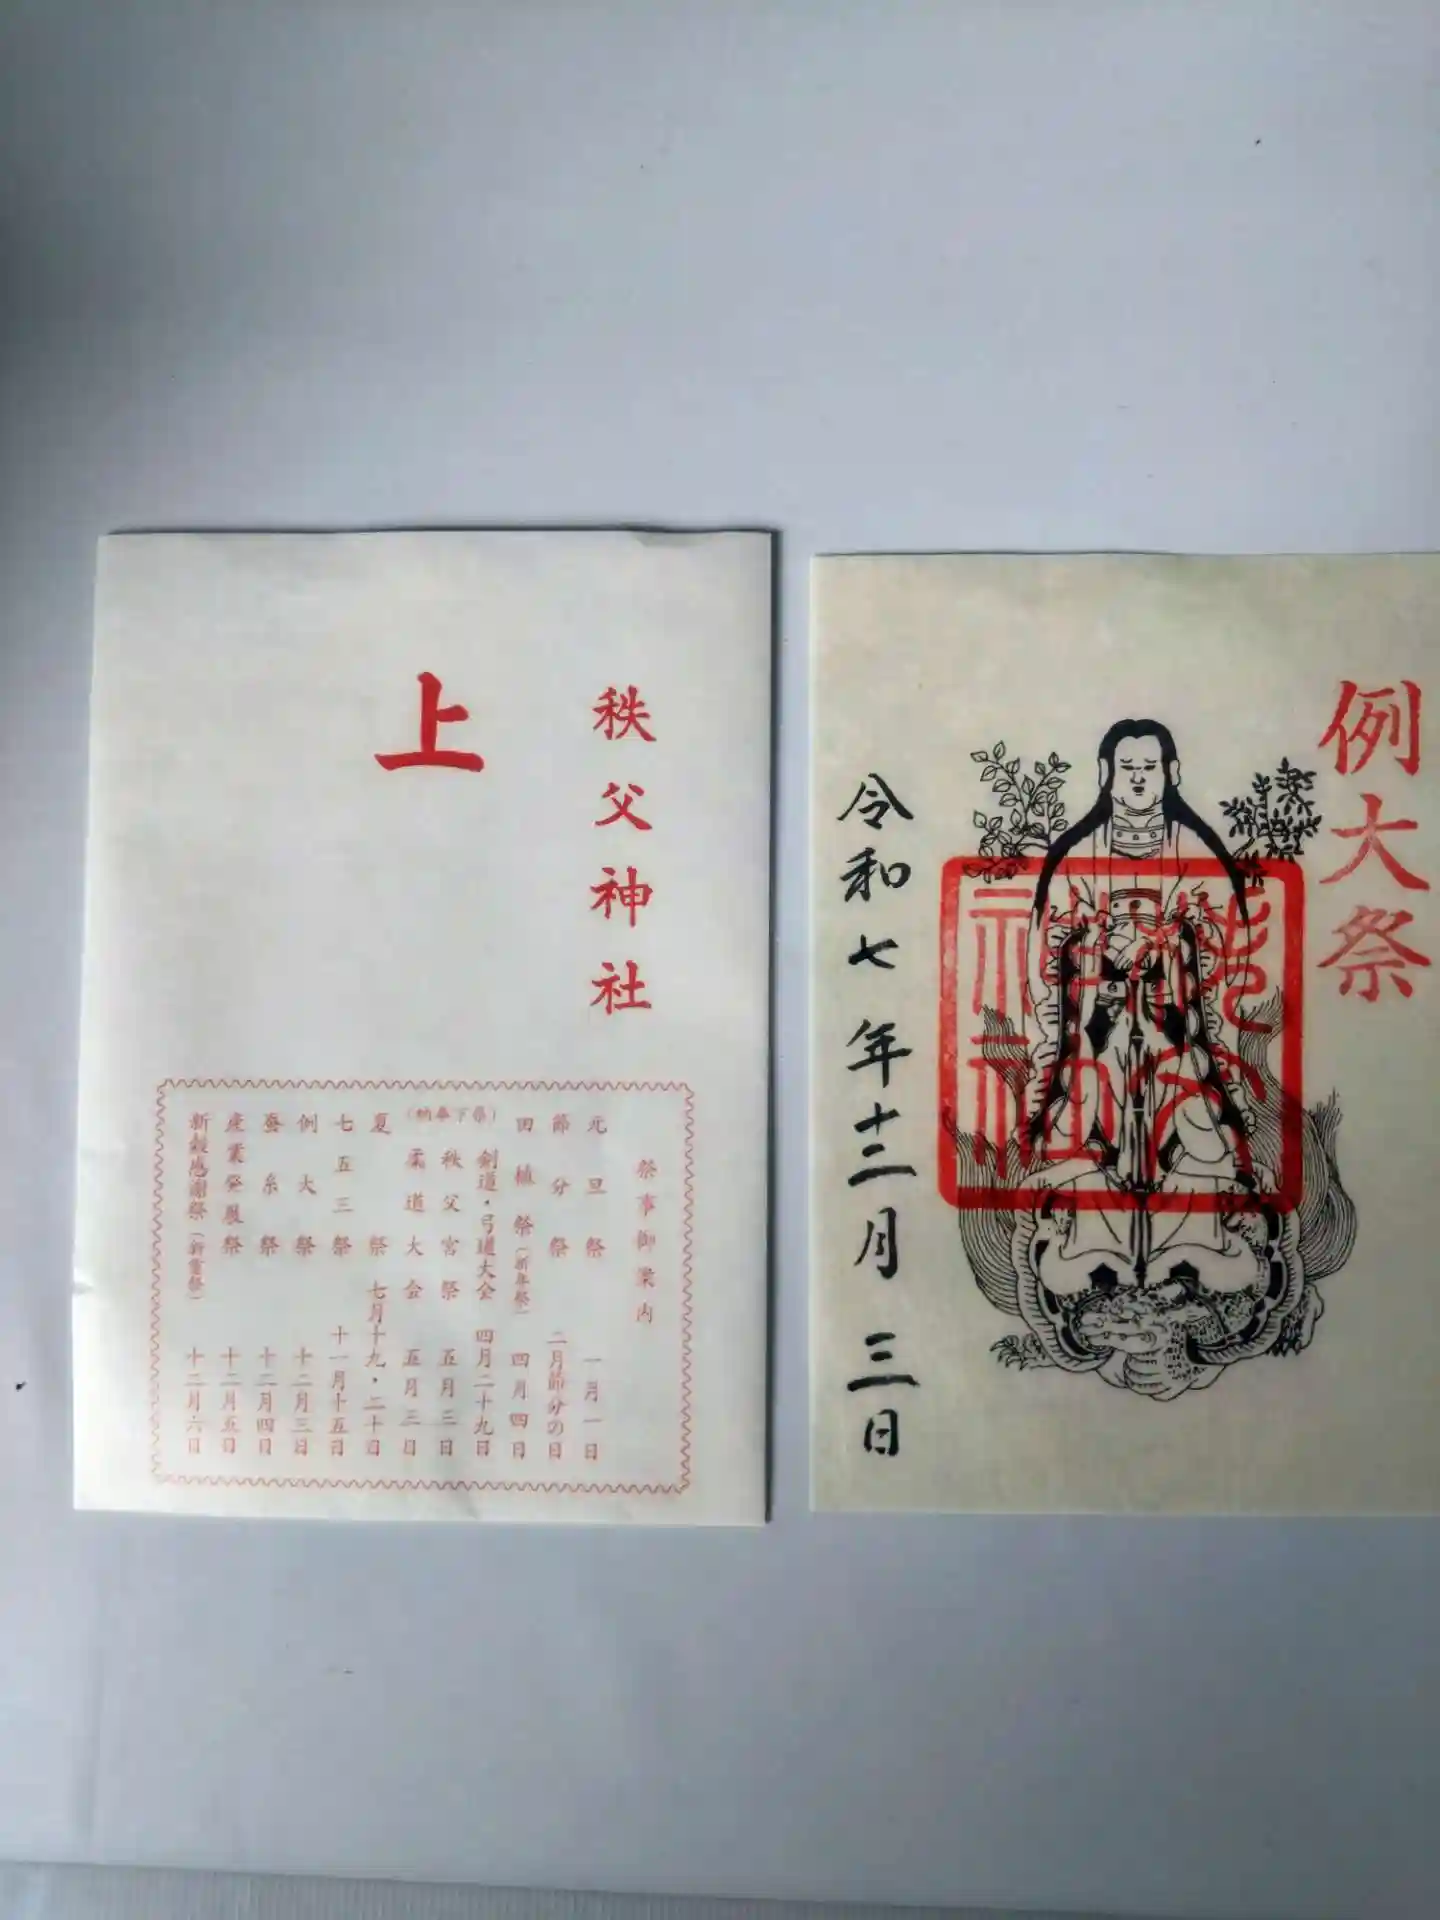 秩父神社
上
祭事御案内
元旦祭 一月一日
節分祭 二月節分の日
田植祭(祈年祭) 四月四日
剣道・弓道大会 四月二十九日
(祭下奉納)
秩父宮祭 五月三日
柔道大会 五月三日
夏祭 七月十九・二十日
七五三祭 十一月十五日
例大祭 十二月三日
蚕糸祭 十二月四日
産業発展祭 十二月五日
新穀感謝祭(新嘗祭) 十二月六日
例大祭
秩父
神社
令和七年十二月三日